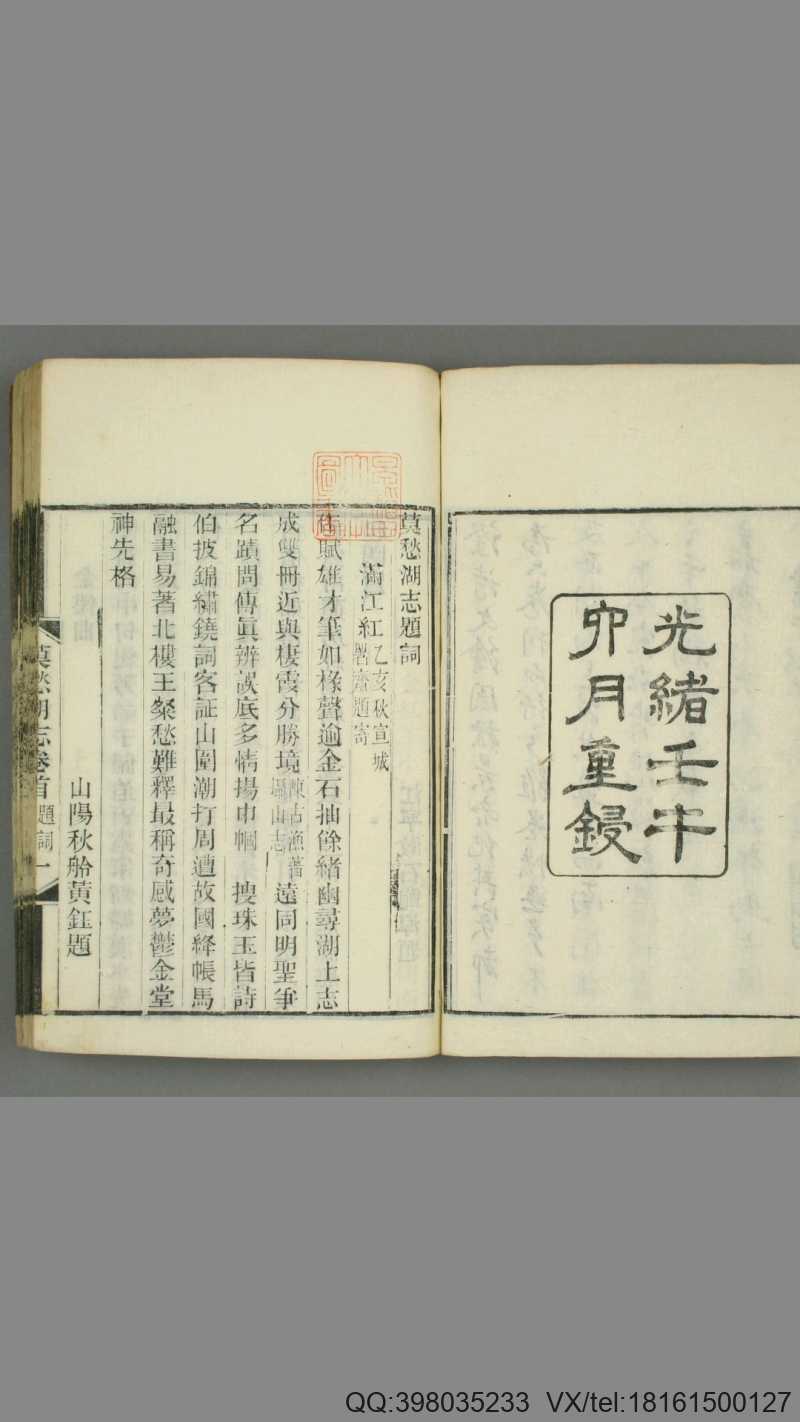 光緒壬午
卯月重鋟
莫愁湖志題詞
滿江紅 乙亥秋宣城 署齋題寄
賦雄才筆如椽聲逾金石抽餘緒幽尋湖上志
成雙冊近與棲霞分勝境 陳古漁著 攝山志 遠同明聖爭
名蹟問傳眞辨誤底多情揚巾幗 搜珠玉皆詩
伯披錦繡鐃詞客証山圍潮打周遭故國絳帳馬
融書易著北樓王粲愁難釋最稱奇感夢鬱金堂
神先格
山陽秋舲黃鈺題
莫愁湖志卷首 題詞 一
QQ:398035233 VX/tel:18161500127